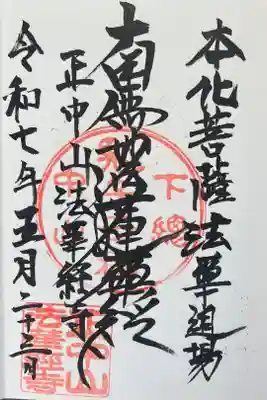 本化菩薩法華道場
南無妙法蓮華経
正中山法華経寺
令和七年五月二十三日
下總
正中山
法華経寺